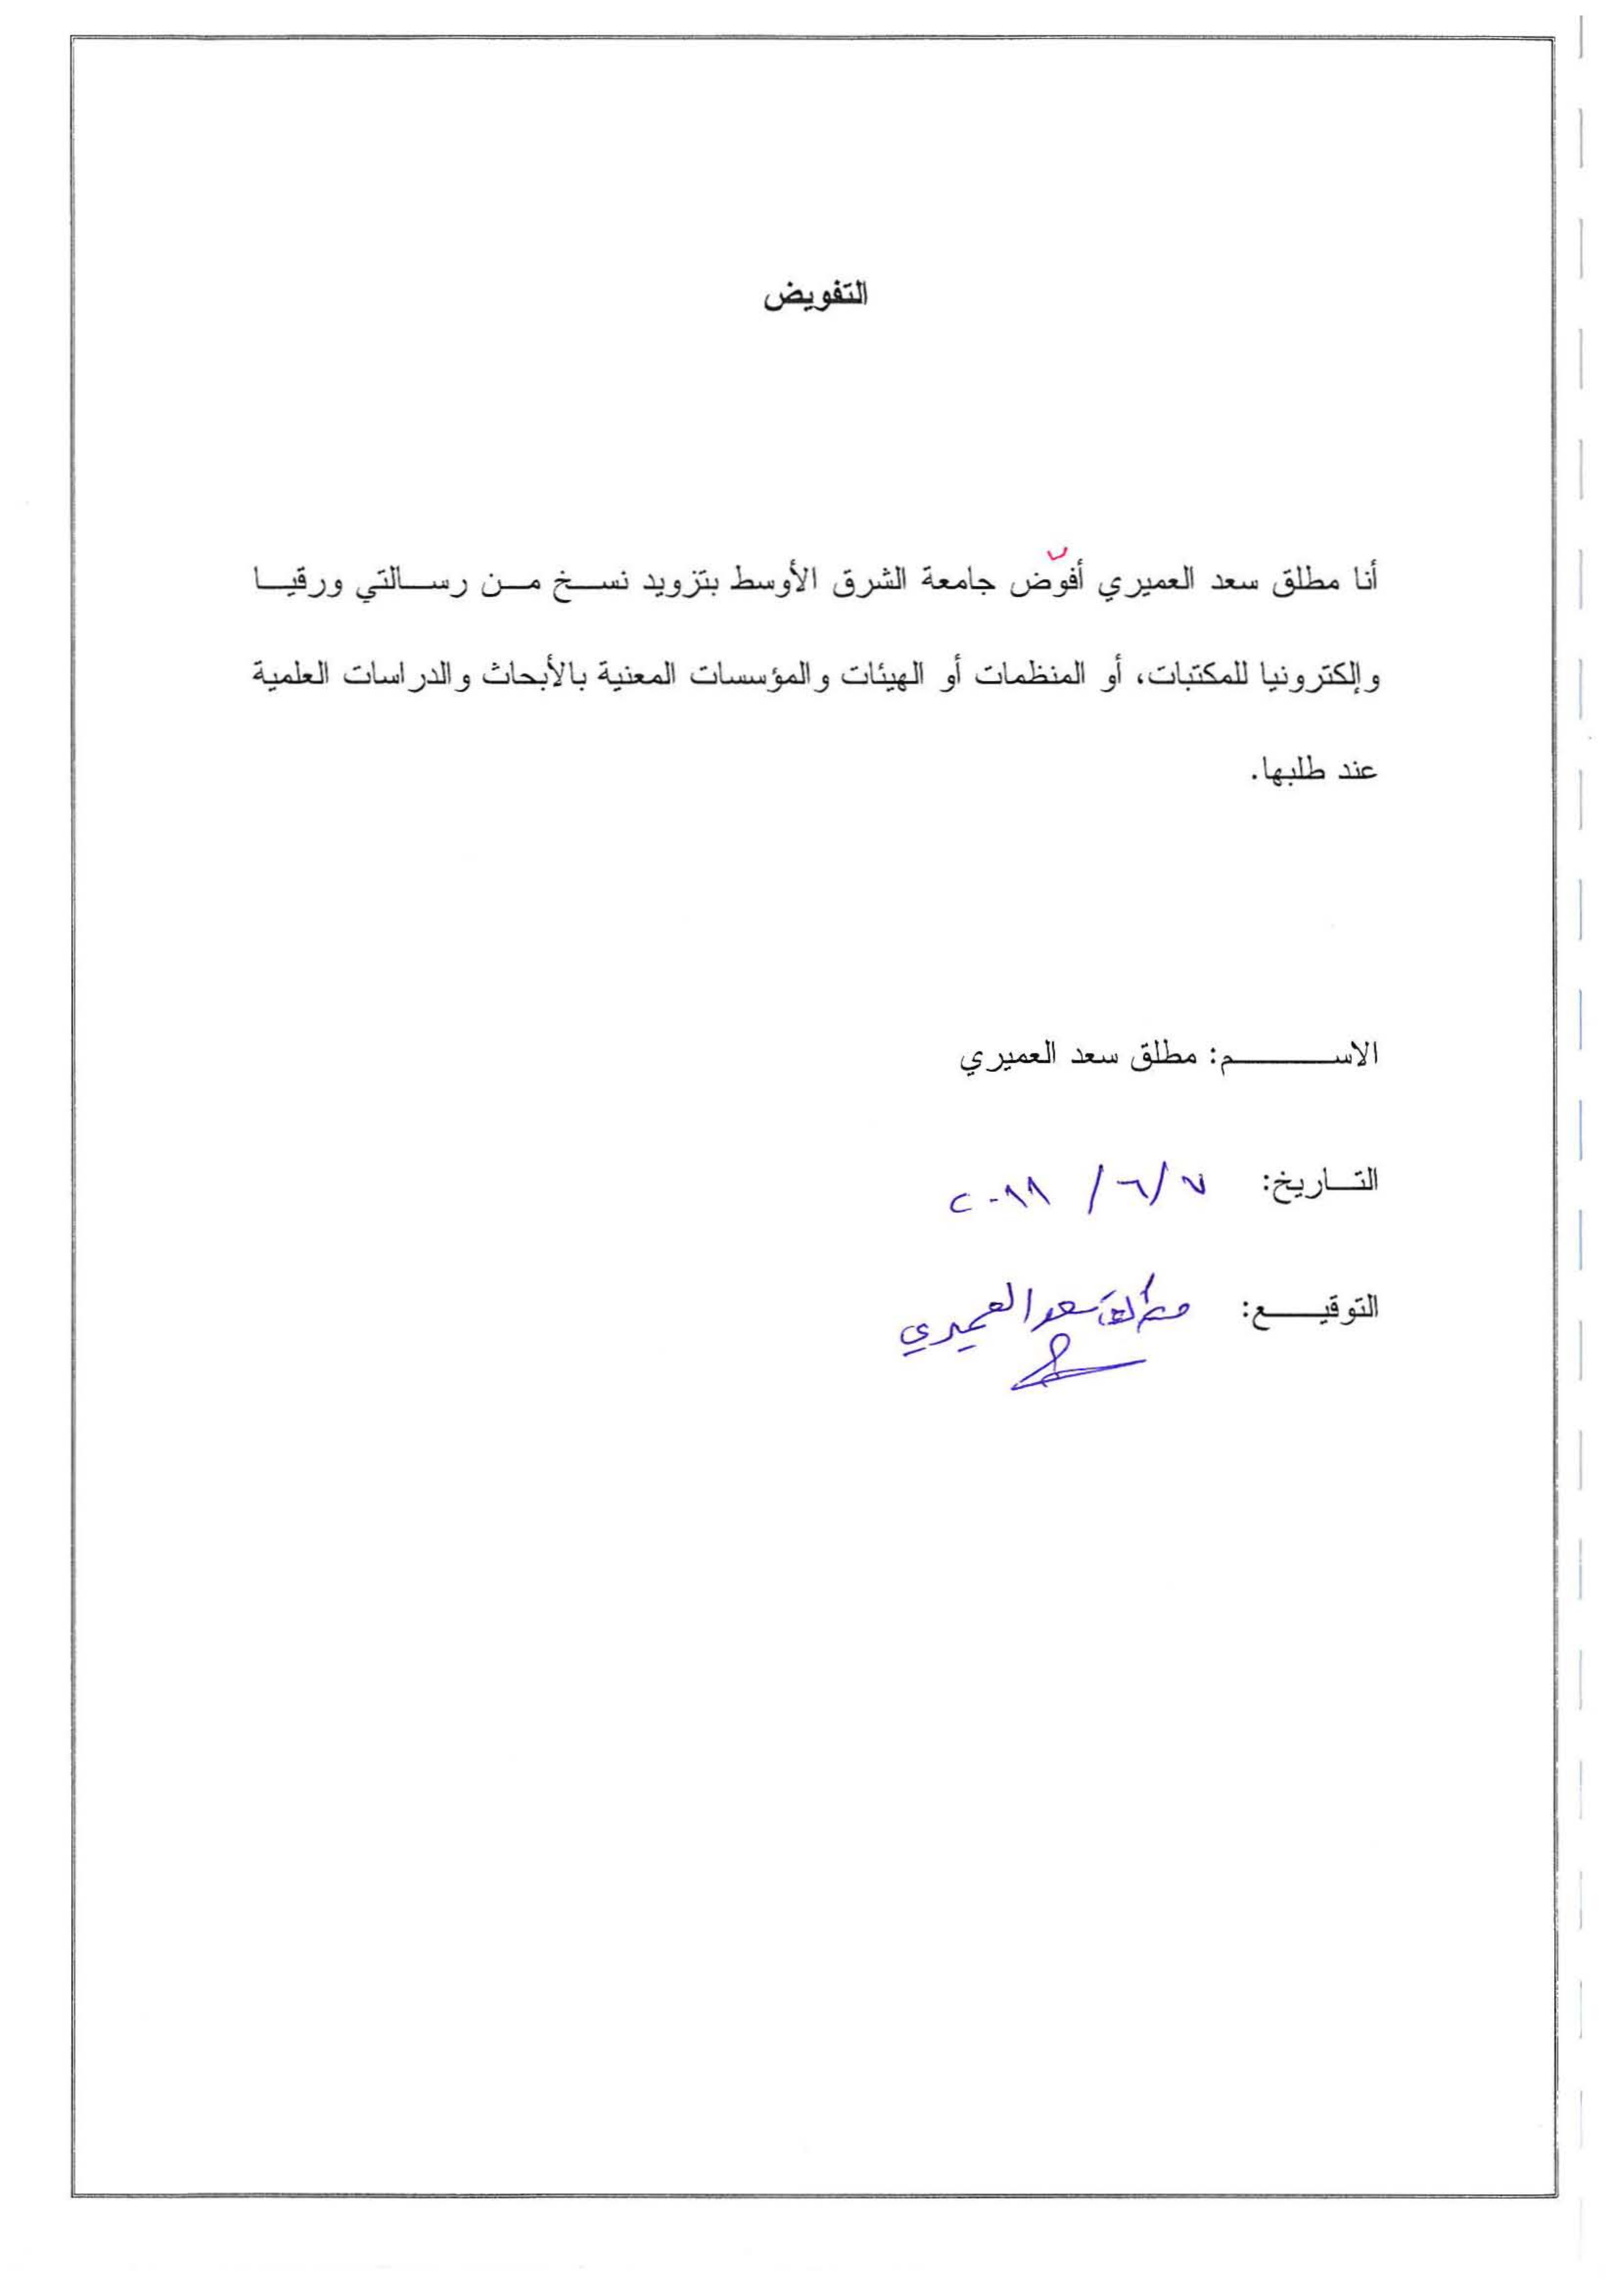 التفويض
أنا مطلق سعد العميري أفوّض جامعة الشرق الأوسط بتزويد نسخ من رسالتي ورقيا
وإلكترونيا للمكتبات، أو المنظمات أو الهيئات والمؤسسات المعنية بالأبحاث والدراسات العلمية
عند طلبها.
الاسم: مطلق سعد العميري
التاريخ: ٧/٦/٢٠١١
التوقيع: مطلق سعد العميري